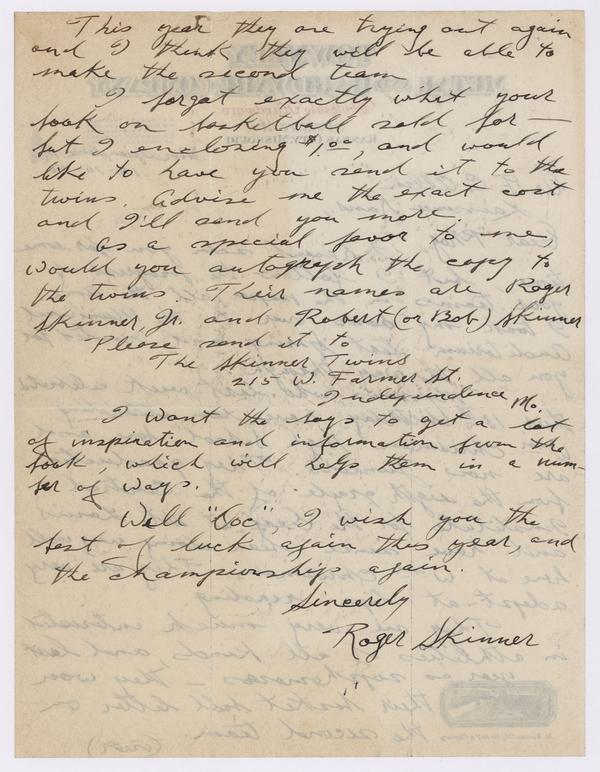 This year they are trying out again
and I think they will be able to
make the second team
I forgot exactly what your
book on basketball sold for —
but I enclosing $1.00, and would
like to have you send it to the
twins. Advise me the exact cost
and I'll send you more.
As a special favor to me,
would you autograph the copy to
the twins. Their names are Roger
Skinner, Jr. and Robert (or Bob) Skinner
Please send it to
The Skinner Twins
215 W. Farmer St.
Independence Mo.
I want the boys to get a lot
of inspiration and information from the
book, which will help them in a num-
ber of ways.
Well "Doc", I wish you the
best of luck again this year, and
the championship again.
Sincerely
Roger Skinner